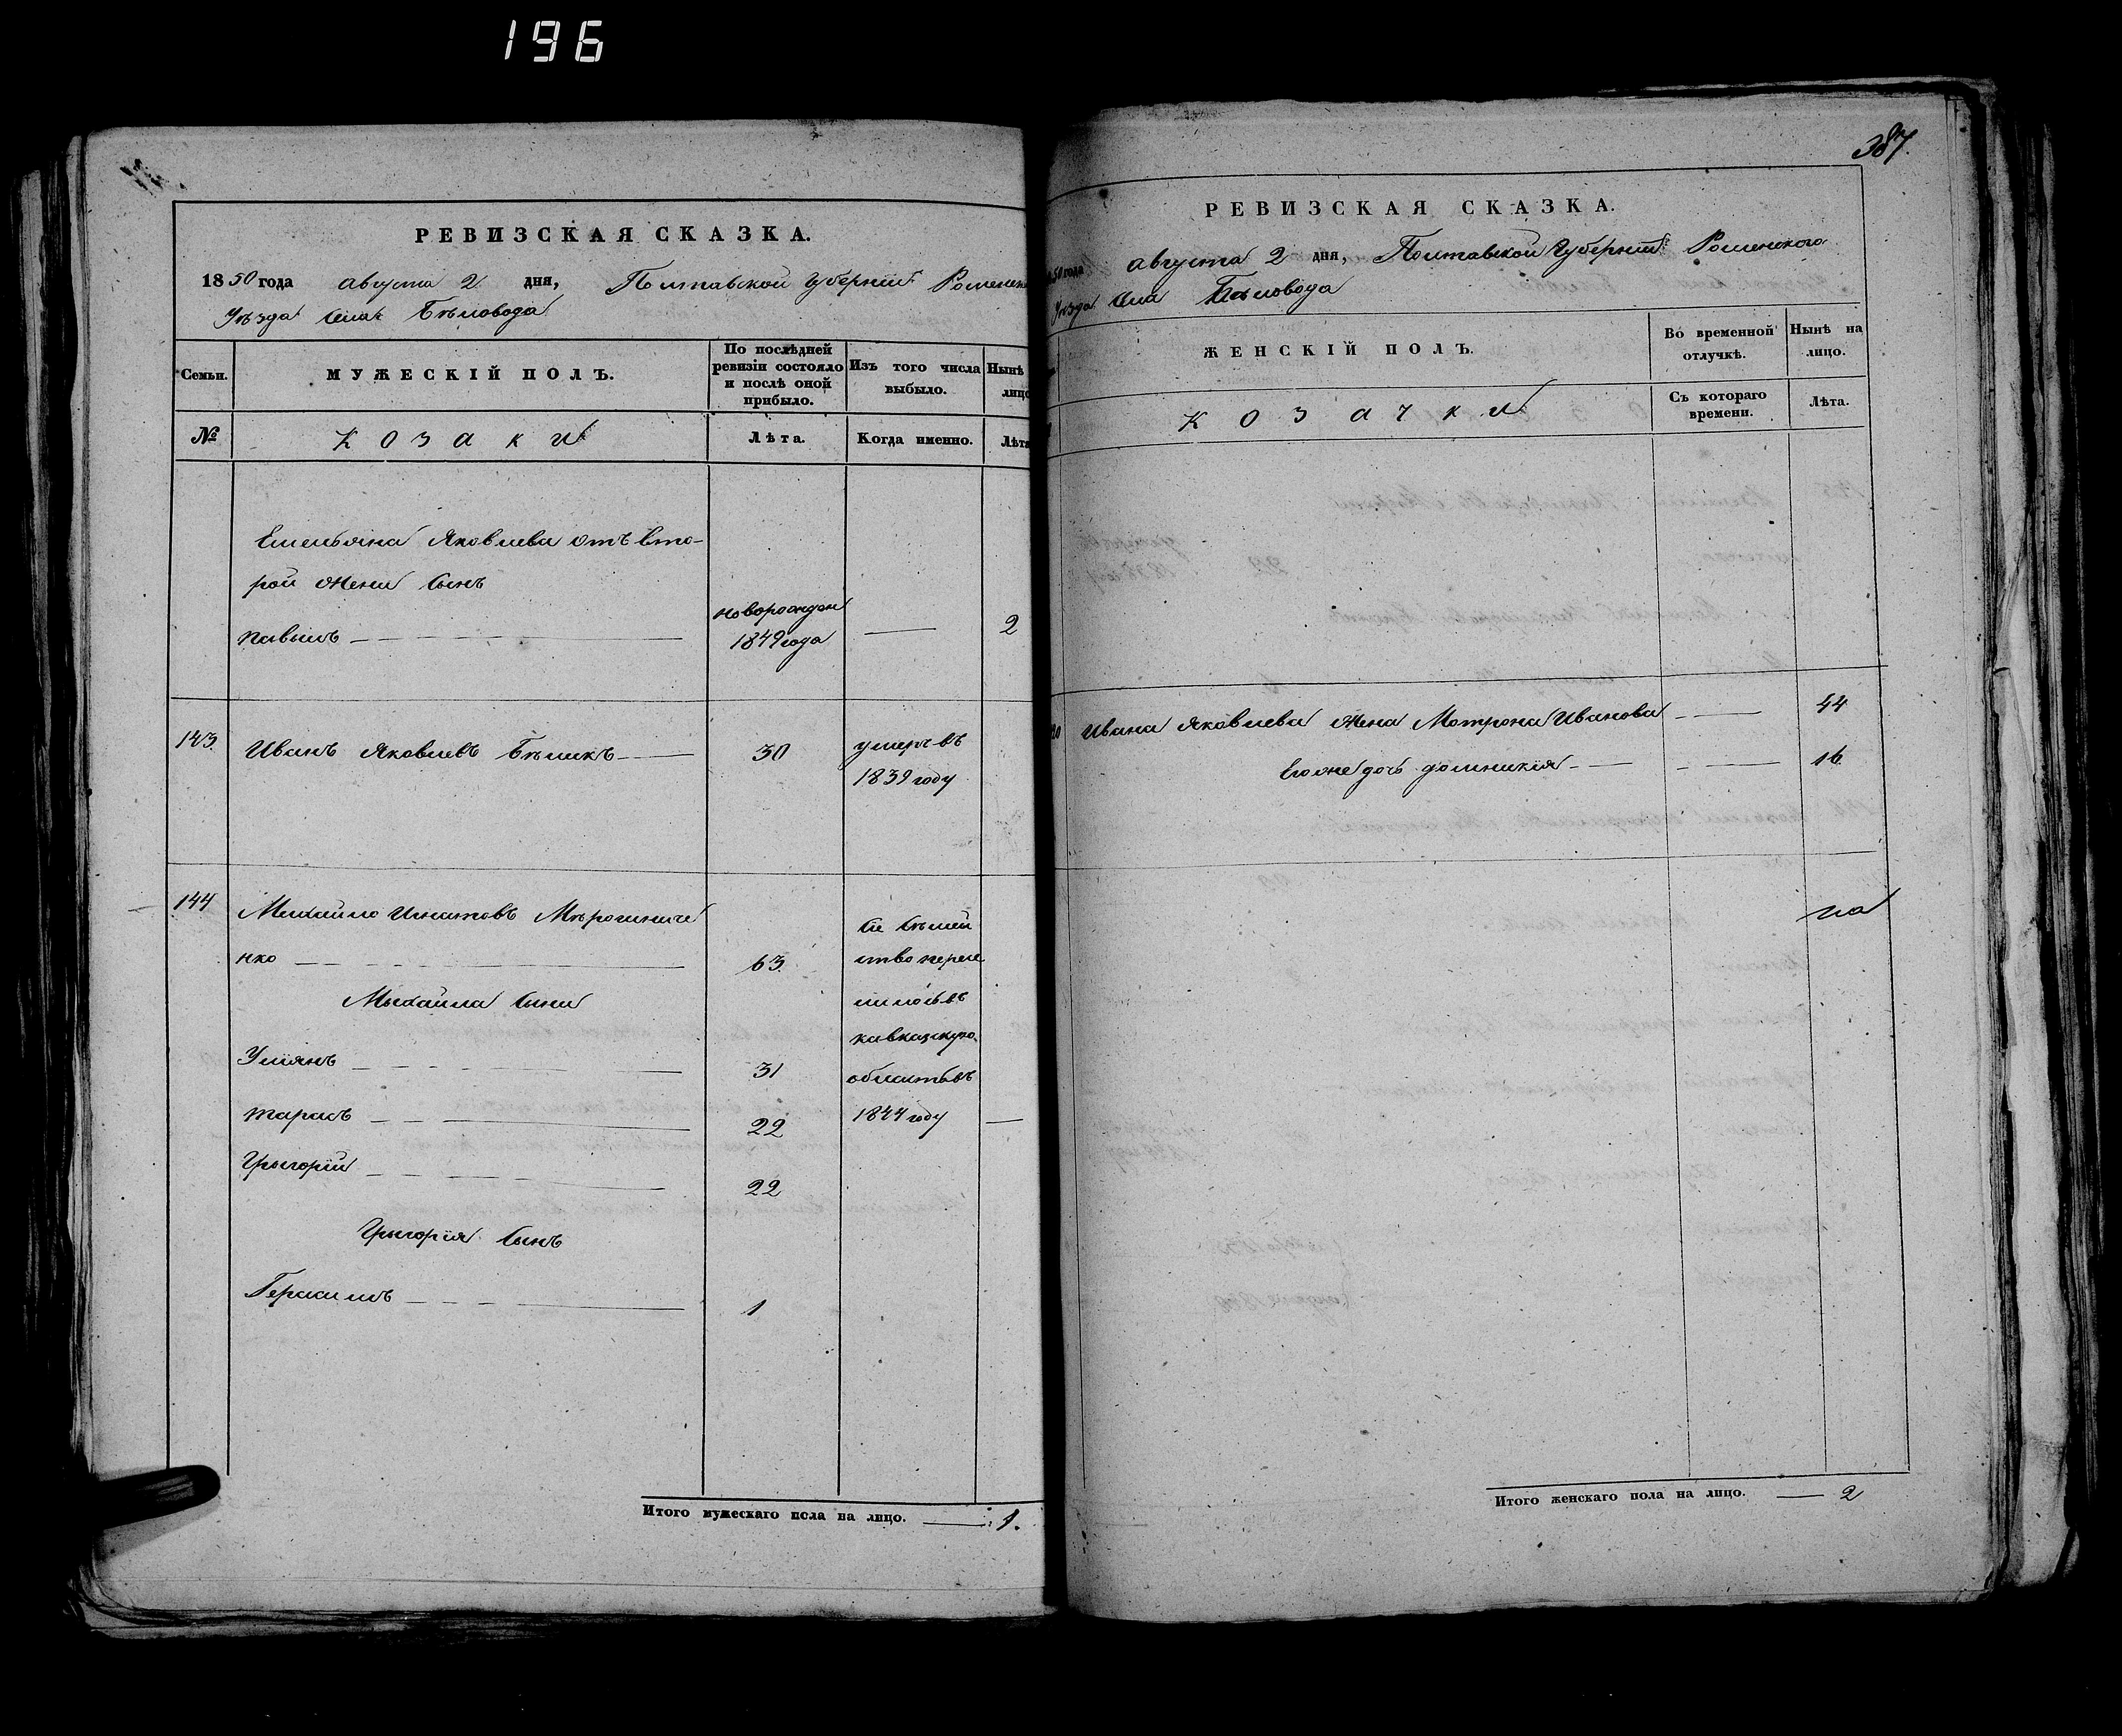 196
РЕВИЗСКАЯ СКАЗКА.
1850 года августа 2 дня, Полтавской губернiи Роменск
Уѣзда села Бѣловода
Семьи.
МУЖЕСКІЙ ПОЛЪ.
По послѣдней ревизіи состояло и послѣ оной прибыло.
Изъ того числа выбыло.
Нынѣ
лицо
№
Козаки
Лѣта.
Когда именно.
Лѣта
Емельяна Яковлева отъ вто-
рой жени сынъ
Павылъ
новорожден
1849 года
2
143
Иванъ Яковлевъ Бѣликъ
30
умеръ въ
1839 году
144
Михайло Игнатовъ
нко
63
Се сѣмей
ство пересе
лилось въ
кавказскую
область въ
1844 году
Михайла сыни
Уліянъ
31
Тарасъ
22
Григорій
22
Григорія сынъ
Герасимъ
1
Итого мужескаго пола на лицо. 1.
387.
РЕВИЗСКАЯ СКАЗКА.
50 года августа 2 дня, Полтавской Губерніи Роменского
Уѣзда села Бѣловода
ЖЕНСКІЙ ПОЛЪ.
Во временной отлучкѣ.
Нынѣ на лицо.
Козачки
Съ котораго времени.
Лѣта.
Ивана Яковлева жена Мотрона Иванова
44
Его же дочь Домникія
16
Итого женскаго пола на лицо. 2